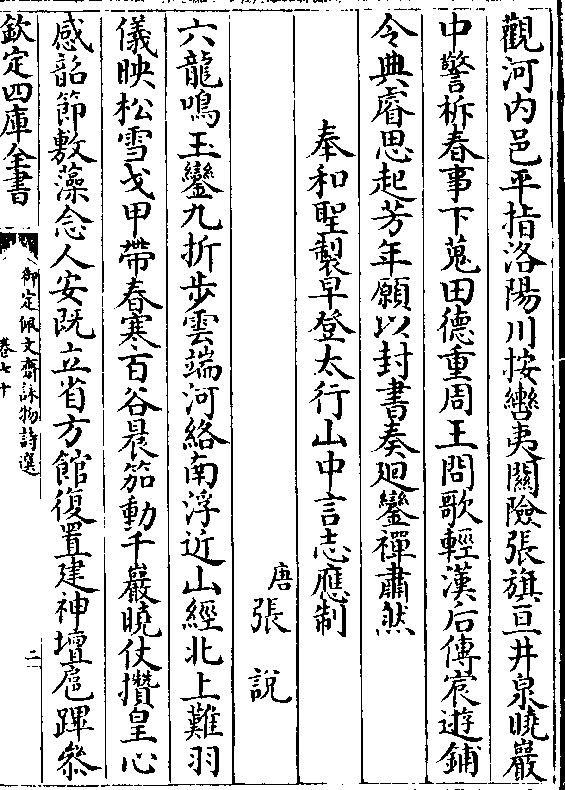 觀河内邑平指洛陽川按轡夷關險張旗亘井泉曉巖
中警柝春事下蒐田德重周王問歌輕漢后傳宸遊鋪
令典睿思起芳年願以封書奏廻鑾禪肅然
奉和聖製早登太行山中言志應制
唐張說
六龍鳴玉鑾九折步雲端河絡南浮近山經北上難羽
儀映松雪戈甲帶春寒百谷晨笳動千巖曉仗攢皇心
感韶節敷藻念人安既立省方館復置建神壇扈蹕叅
欽定四庫全書
御定佩文齋詠物詩選
卷七十
二